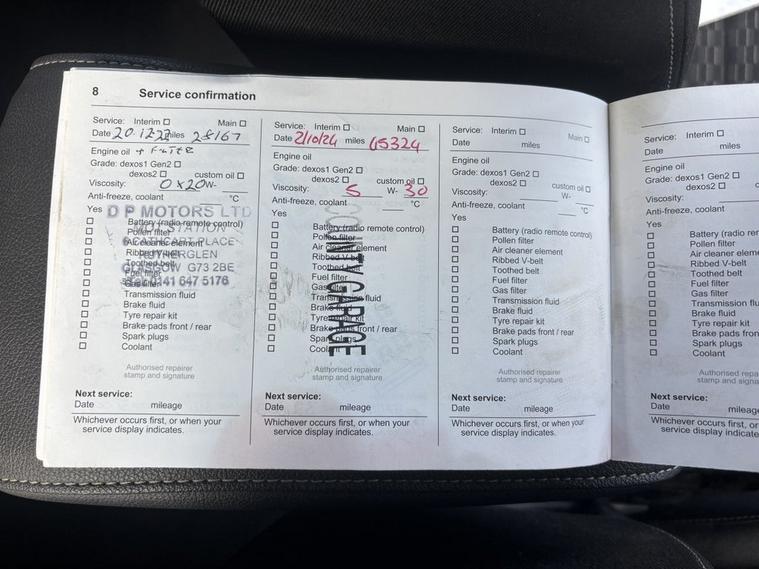 8 Service confirmation
Service: Interim ☐ Main ☐
Date 20.12.22 miles 28167
Engine oil + Filter
Grade: dexos1 Gen2 ☐
dexos2 ☐ custom oil ☐
Viscosity: 0x20 W-
Anti-freeze, coolant °C
Yes
D P MOTORS LTD
☐ Battery (radio remote control)
STATION
☐ Pollen filter
☐ Air cleaner element
PLACE
☐ Ribbed V-belt
☐ Toothed belt
☐ Fuel filter
GLASGOW G73 2BE
☐ Gas filter
0141 647 5176
☐ Transmission fluid
☐ Brake fluid
☐ Tyre repair kit
☐ Brake pads front / rear
☐ Spark plugs
☐ Coolant
Authorised repairer
stamp and signature
Next service:
Date mileage
Whichever occurs first, or when your
service display indicates.
Service: Interim ☐ Main ☐
Date 2/10/24 miles 65324
Engine oil
Grade: dexos1 Gen2 ☐
dexos2 ☐ custom oil ☐
Viscosity: 5 W- 30
Anti-freeze, coolant °C
Yes
☐ Battery (radio remote control)
☐ Pollen filter
☐ Air cleaner element
☐ Ribbed V-belt
☐ Toothed belt
☐ Fuel filter
☐ Gas filter
☐ Transmission fluid
☐ Brake fluid
☐ Tyre repair kit
☐ Brake pads front / rear
☐ Spark plugs
☐ Coolant
GARAGE
Authorised repairer
stamp and signature
Next service:
Date mileage
Whichever occurs first, or when your
service display indicates.
Service: Interim ☐ Main ☐
Date miles
Engine oil
Grade: dexos1 Gen2 ☐
dexos2 ☐ custom oil ☐
Viscosity: W-
Anti-freeze, coolant °C
Yes
☐ Battery (radio remote control)
☐ Pollen filter
☐ Air cleaner element
☐ Ribbed V-belt
☐ Toothed belt
☐ Fuel filter
☐ Gas filter
☐ Transmission fluid
☐ Brake fluid
☐ Tyre repair kit
☐ Brake pads front / rear
☐ Spark plugs
☐ Coolant
Authorised repairer
stamp and signature
Next service:
Date mileage
Whichever occurs first, or when your
service display indicates.
Service: Interim ☐
Date miles
Engine oil
Grade: dexos1 Gen2 ☐
dexos2 ☐ c
Viscosity:
Anti-freeze, coolant
Yes
☐ Battery (radio rer
☐ Pollen filter
☐ Air cleaner eleme
☐ Ribbed V-belt
☐ Toothed belt
☐ Fuel filter
☐ Gas filter
☐ Transmission flu
☐ Brake fluid
☐ Tyre repair kit
☐ Brake pads fron
☐ Spark plugs
☐ Coolant
Authorised repa
stamp and signa
Next service:
Date mileag
Whichever occurs first, or w
service display indicate